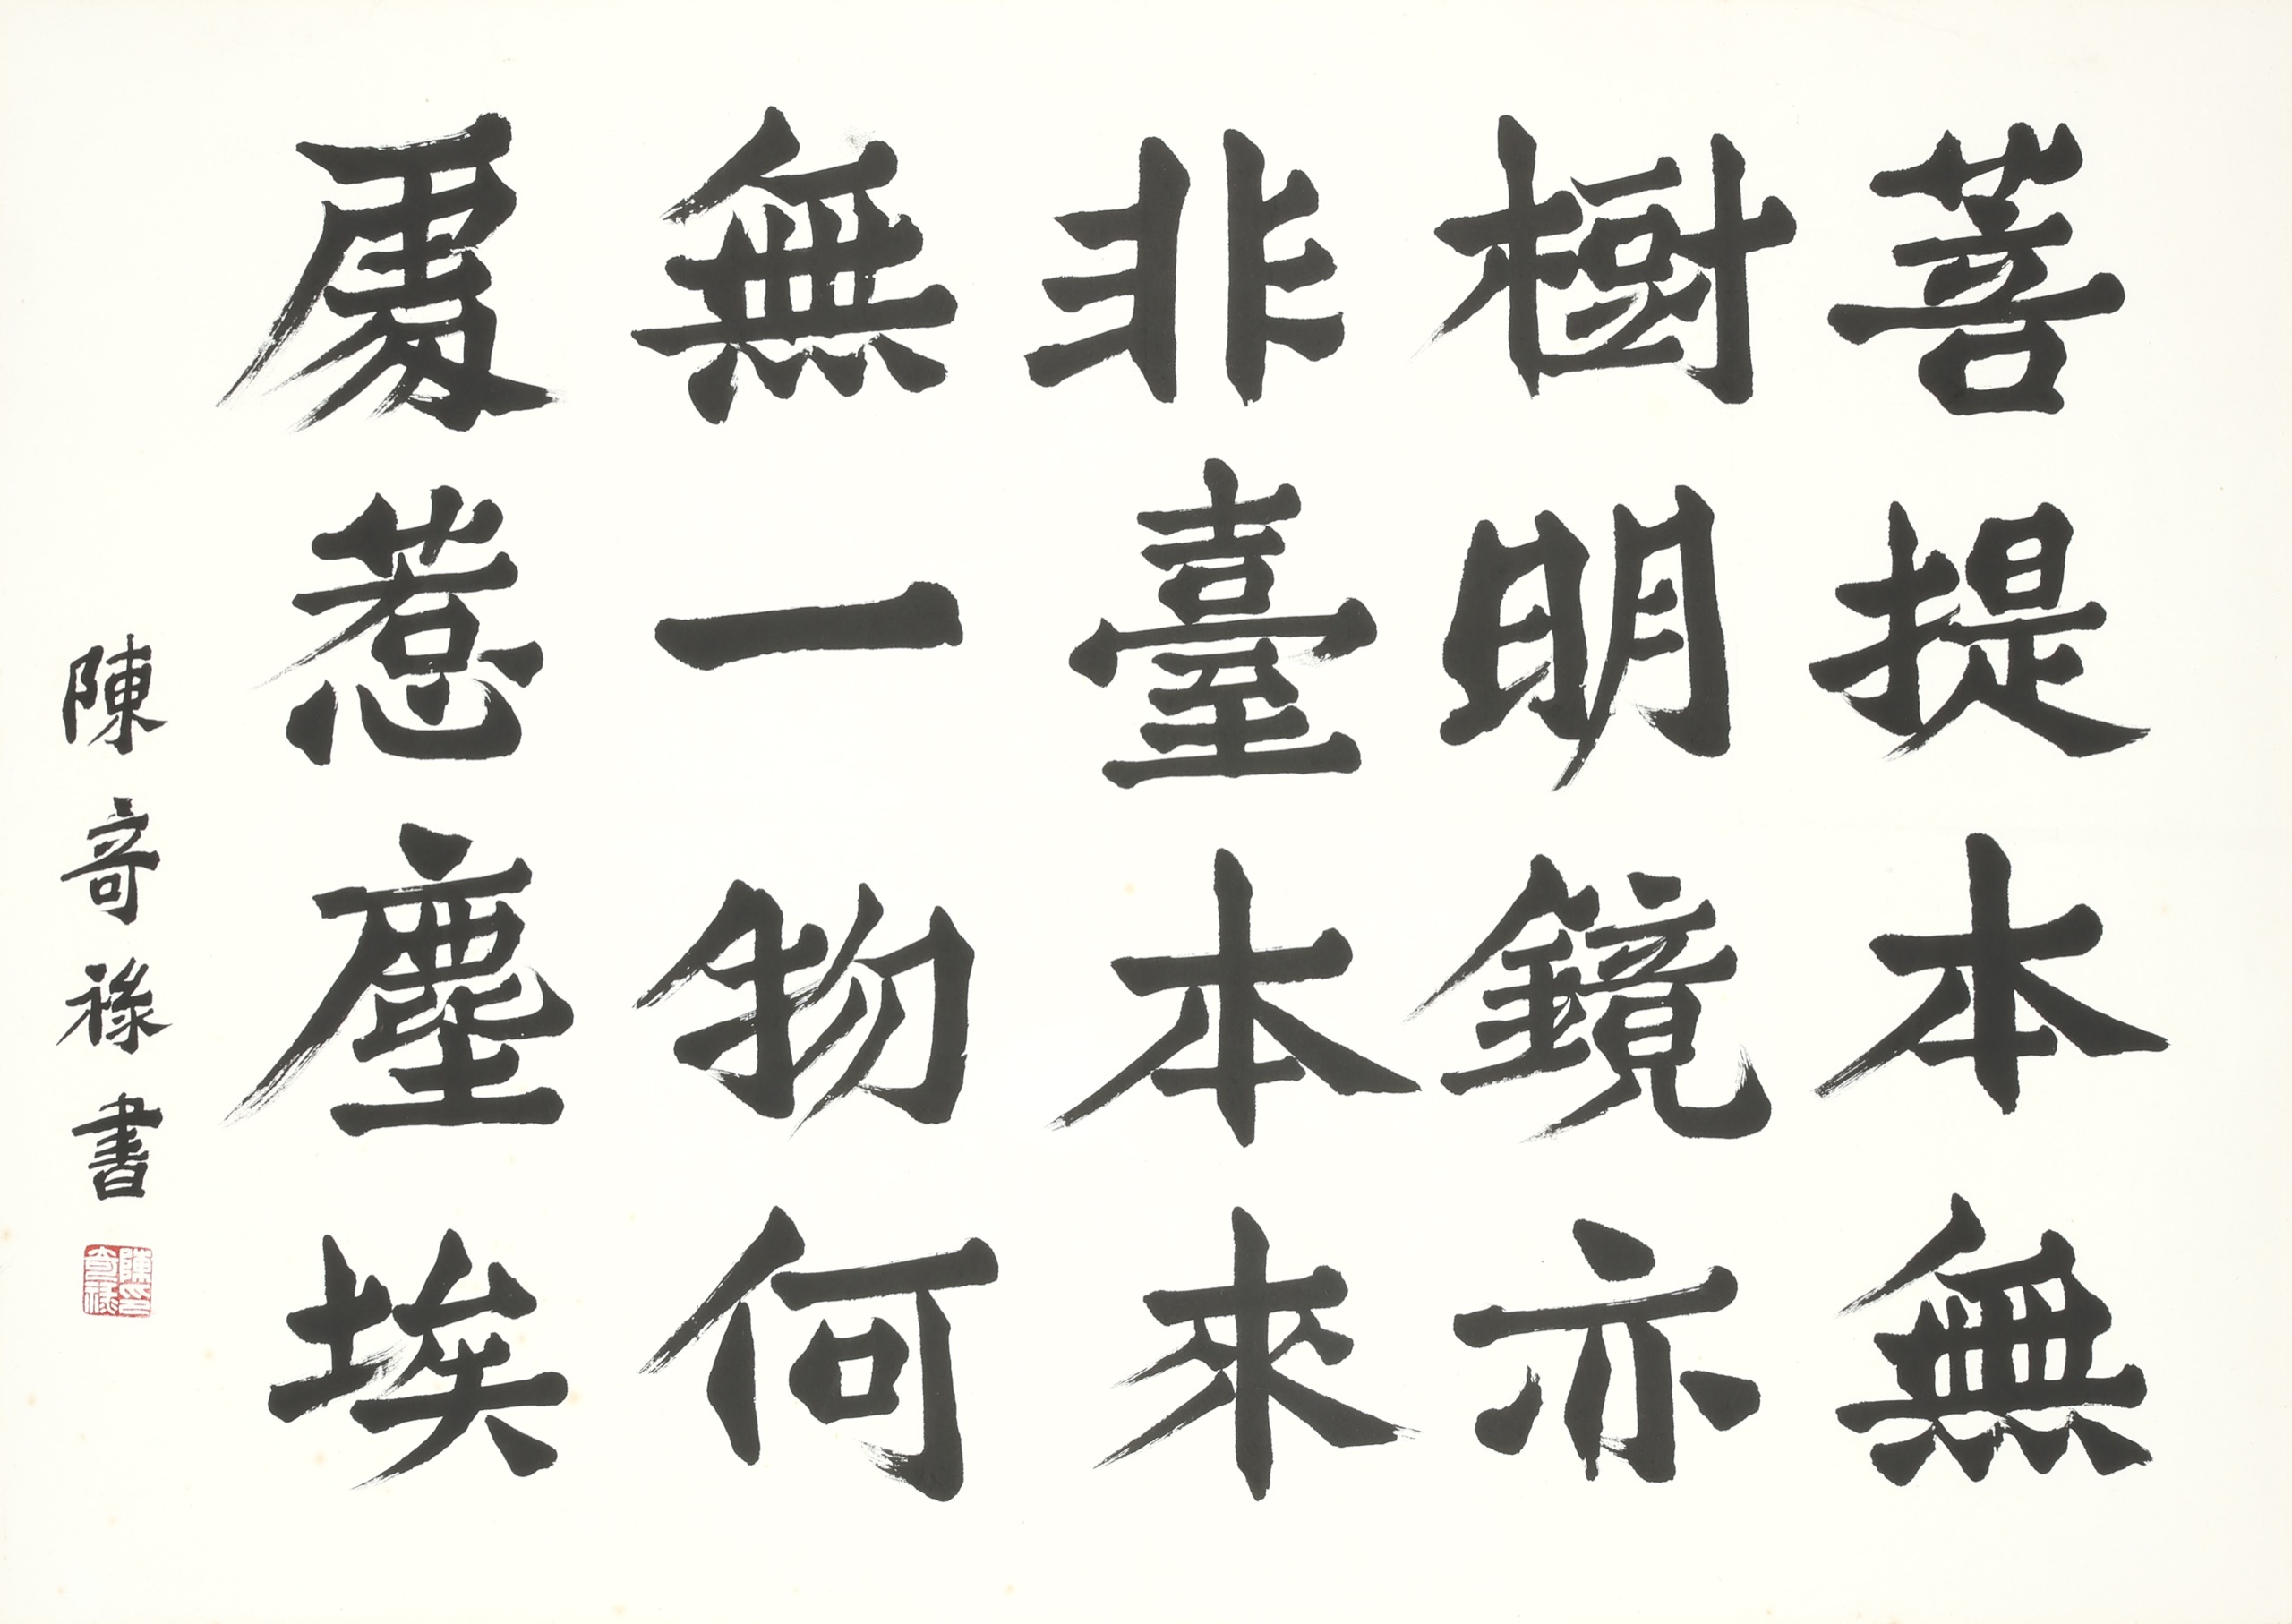 菩提本無
樹明鏡亦
非臺本來
無一物何
處惹塵埃
陳奇祿書
陳印奇祿